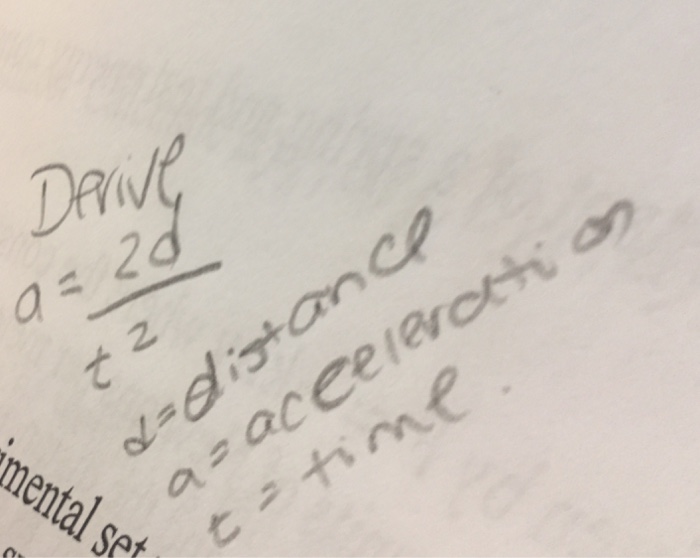 Derive
a = 2d
t²
d = distance
a = acceleration
t = time.
imental set